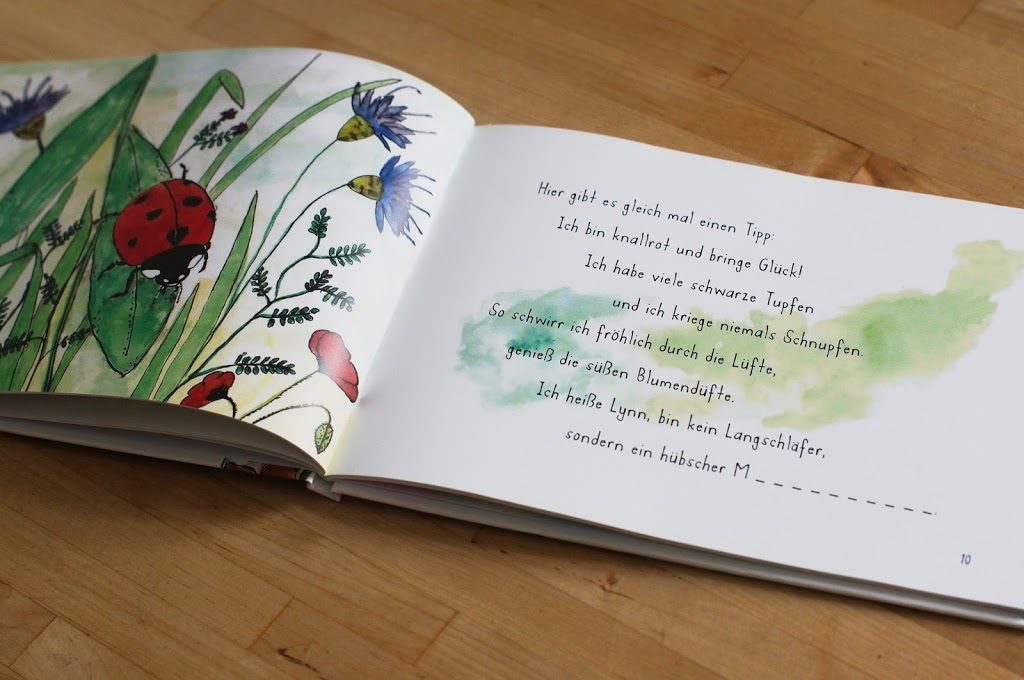 Hier gibt es gleich mal einen Tipp:
Ich bin knallrot und bringe Glück!
Ich habe viele schwarze Tupfen
und ich kriege niemals Schnupfen.
So schwirr ich fröhlich durch die Lüfte,
genieß die süßen Blumendüfte.
Ich heiße Lynn, bin kein Langschläfer,
sondern ein hübscher M _ _ _ _ _ _ _ _ _ _ _ .
10